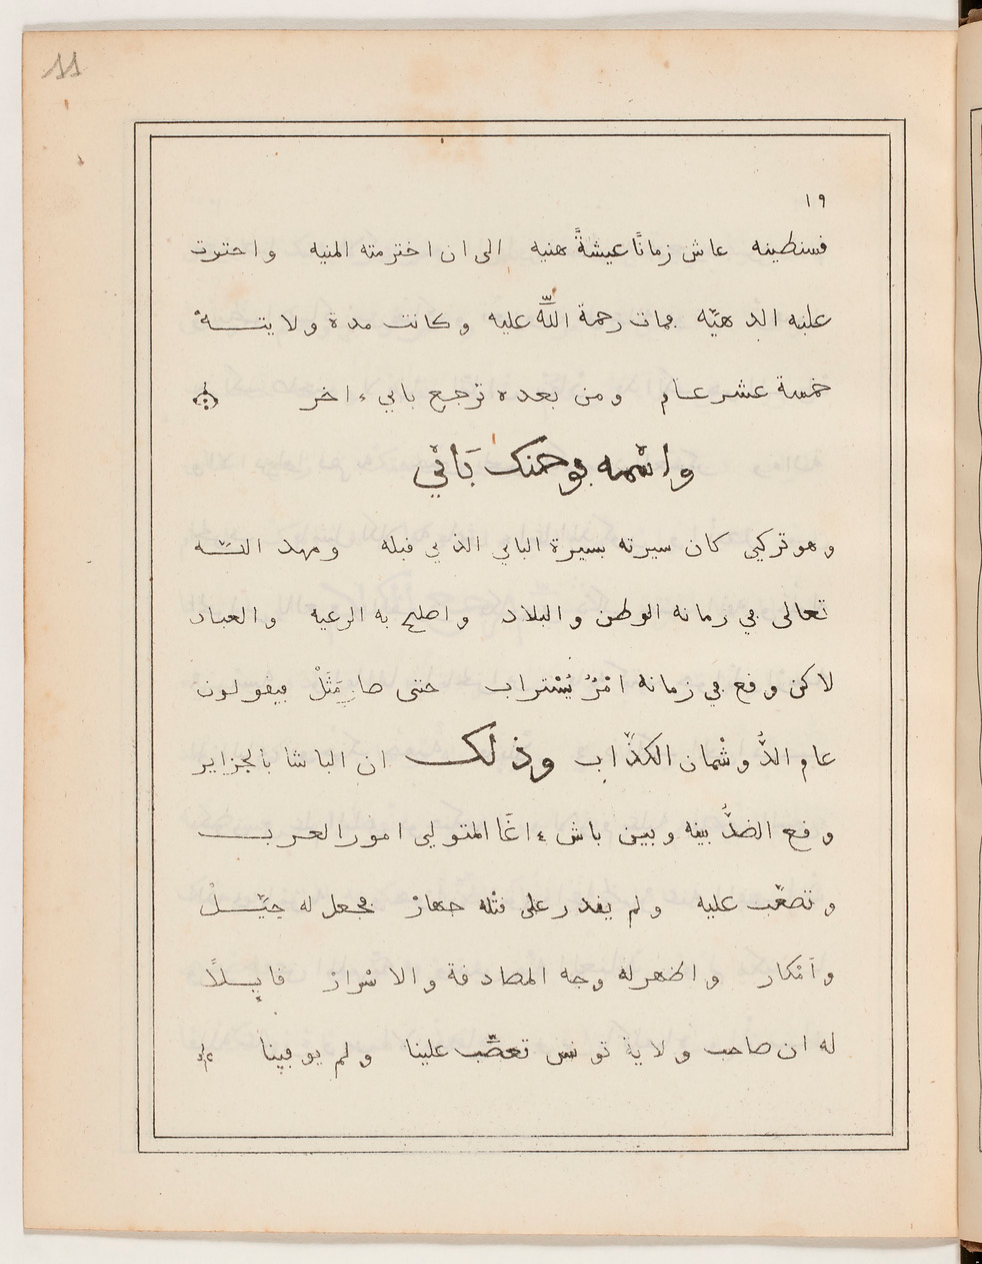 11
١٩
فسنطينه عاش زمانًا عيشةً هنيه الى ان اخترمته المنيه واحتوت
عليه الدهيّه فمات رحمة اللّه عليه وكانت مدة ولايتــهْ
خمسة عشر عــام ومن بعده ترجع باي ءاخر
واسْمه بوحمنك بَايْ
وهو تركي كان سيرته بسيرة الباي الذي فبله ومهد اللــه
تعالى في زمانه الوطن والبلاد واصلح به الرعيه والعباد
لاكن وفع في زمانه امْرٌ يُسْتراب حتى صار مَثَلْ فيفولون
عام الدُّوشْمان الكذّاب وذلك ان الباشا بالجزاير
وفع الضدُّ بينه وبين باش ءاغَا المتولي امور العرب
وتصعّب عليه ولم يفدر على فتله جهارْ فجعل له حِيَــلْ
وآمْكار واظهر له وجه المصادفة والاسْرارْ فايــلًا
له ان صاحب ولاية تونس تعصّب علينا ولم يوفينا